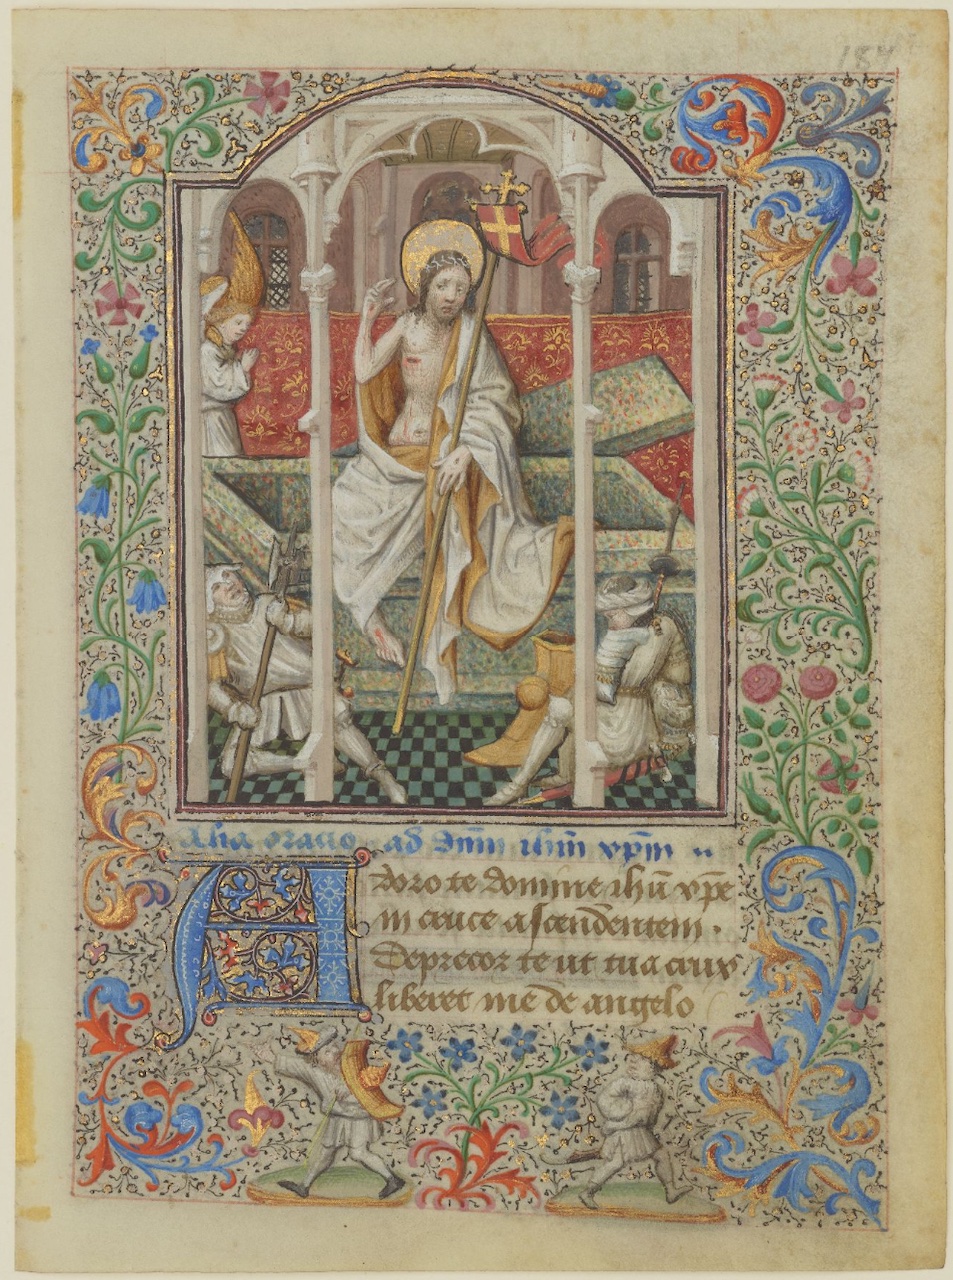 187
Alia oracio ad dn̄m ihm̄ xp̄m
Adoro te domine ihū xp̄e
in cruce ascendentem .
Deprecor te ut tua crux
liberet me de angelo